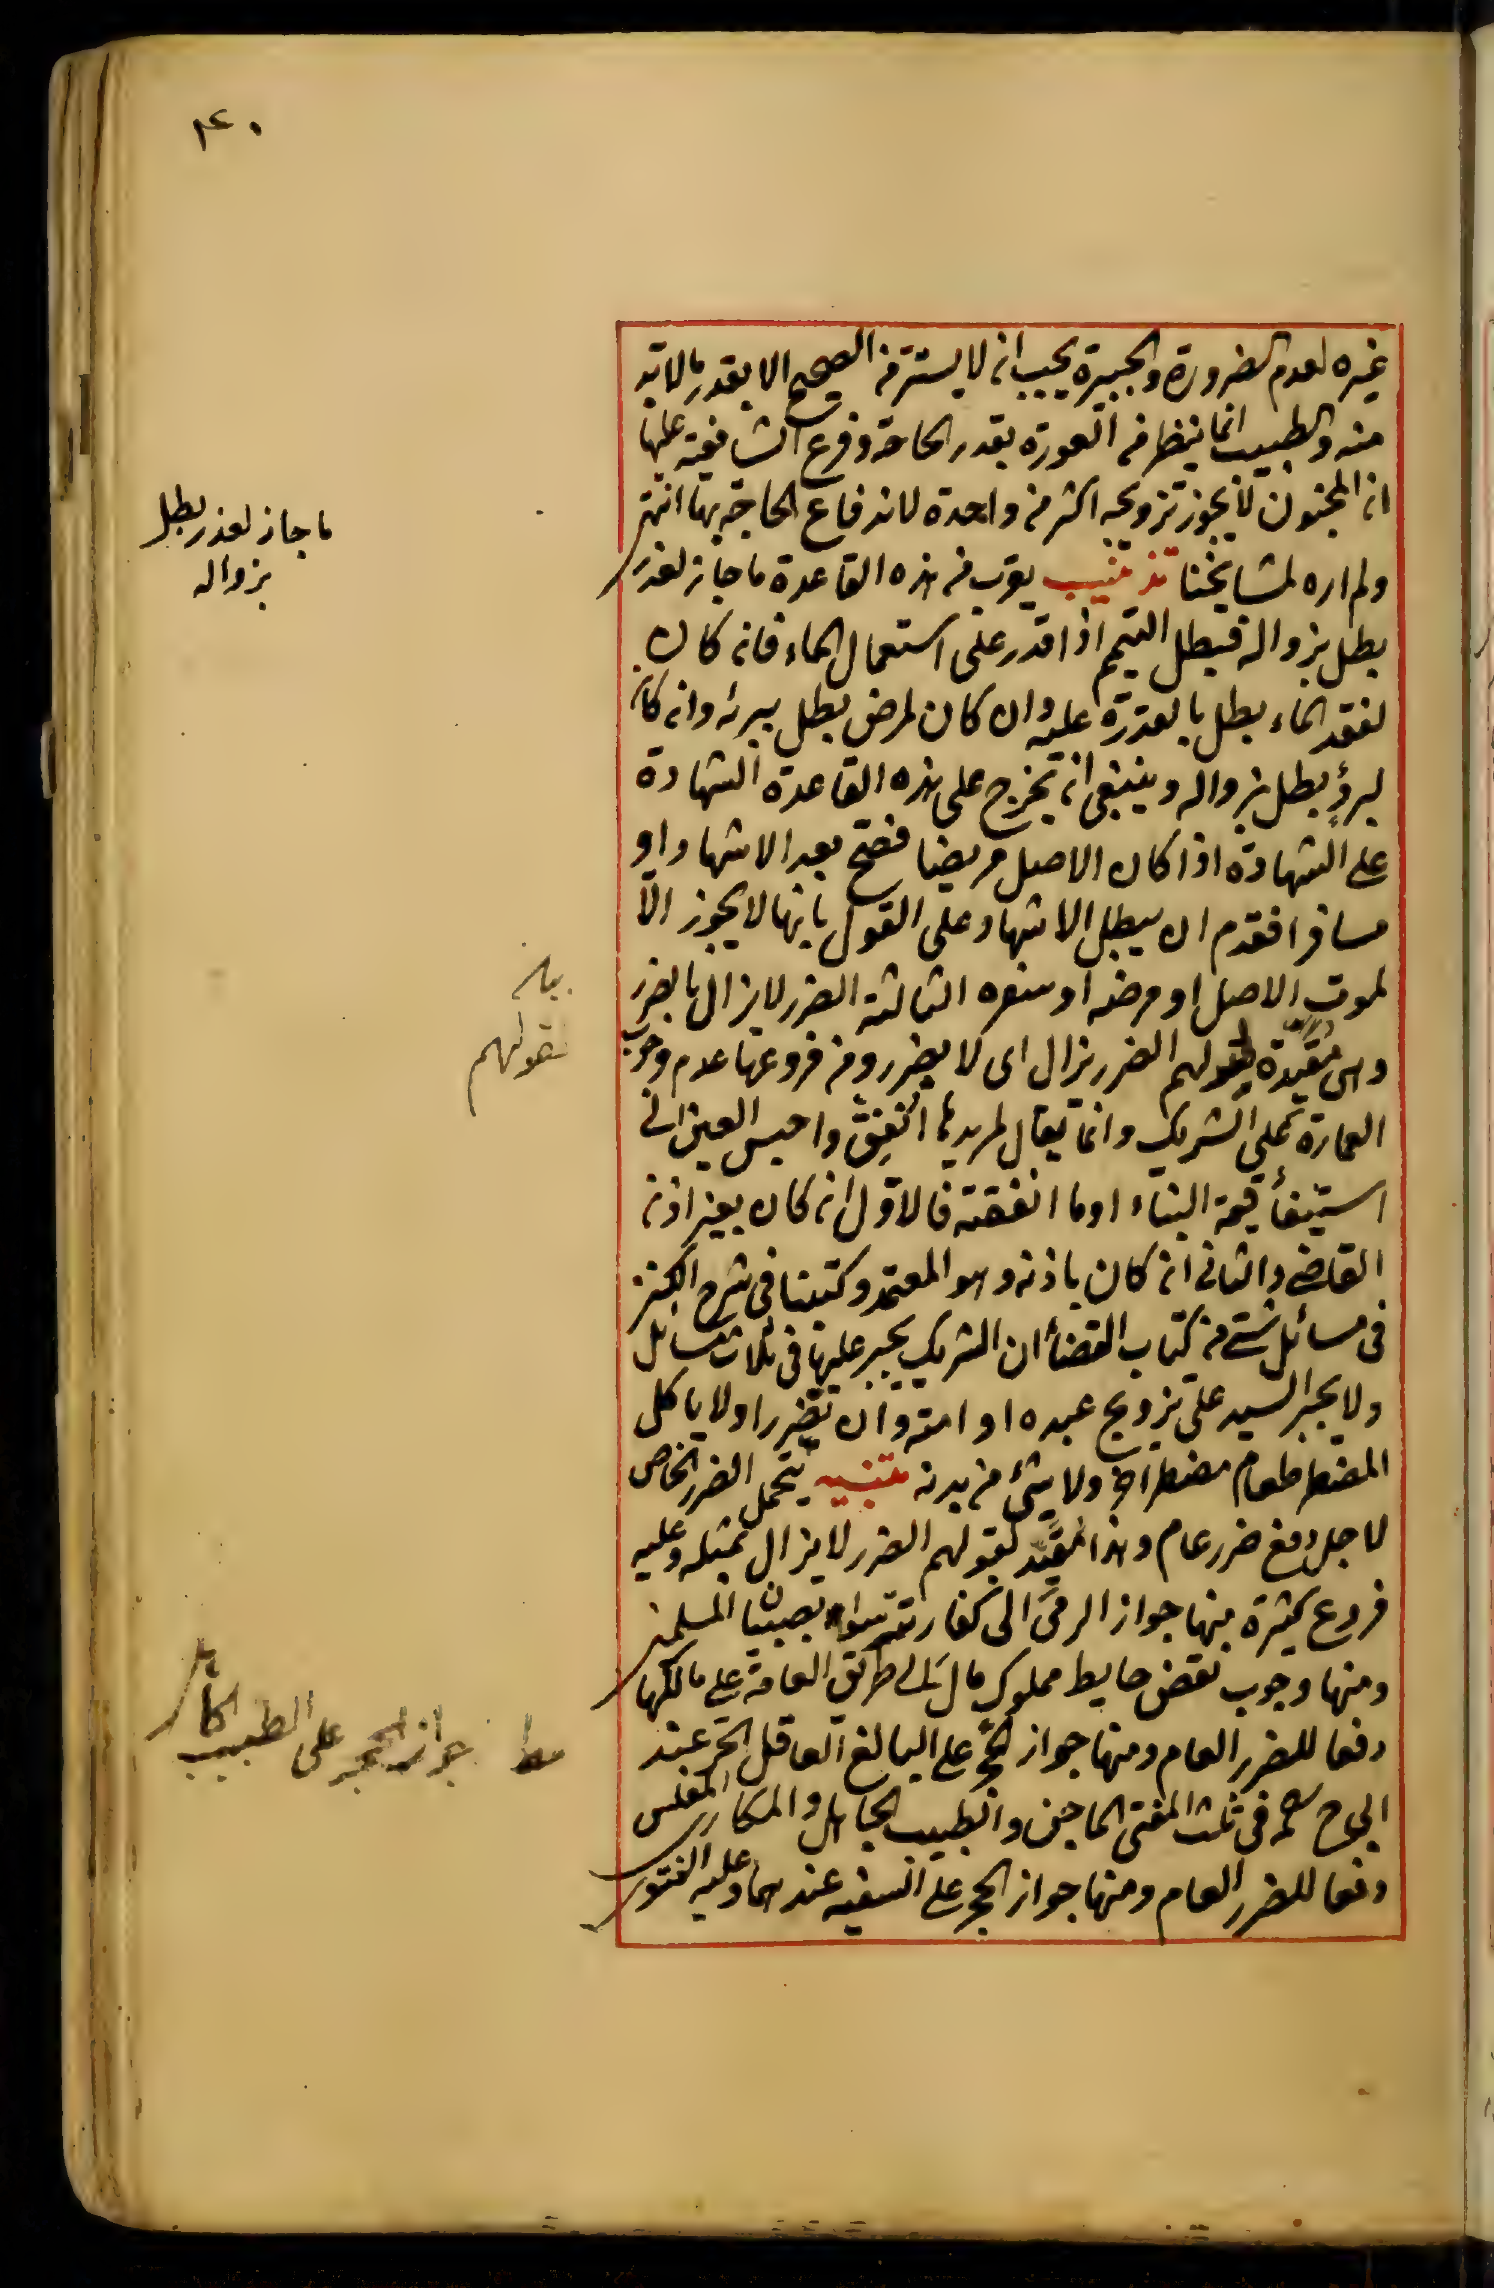 ٤٠
غيره لعدم الضرورة والجبيرة يجب ان لا يستر من الصحيح الا بقدر ما لا بد
منه والطبيب انما ينظر من العورة بقدر الحاجة وفرع الشافعية عليها
ان المجنون لا يجوز تزويجه اكثر من واحدة لاندفاع الحاجة بها انتهى
ولم اره لمشايخنا تذنيب يقرب من هذه القاعدة ما جاز لعذر
بطل بزواله فيبطل التيمم اذا قدر على استعمال الماء فان كان
لفقد الماء بطل بالقدرة عليه وان كان لمرض بطل ببرئه وان كان
لبرد بطل بزواله وينبغى ان تخرج على هذه القاعدة الشهادة
على الشهادة اذا كان الاصل مريضا فصح بعد الاشهاد او
مسافرا فقدم ان يبطل الاشهاد على القول بانها لا يجوز الا
لموت الاصل او مرضه او سفره الثالثة الضرر لا يزال بالضرر
وهى مقيدة لقولهم الضرر يزال اى لا بضرر ومن فروعها عدم وجوب
العمارة على الشريك وانما يقال لمريدها انفق واحبس العين الى
استيفأ قيمة البناء او ما انفقته فالاول ان كان بغير اذن
القاضى والثانى ان كان باذنه وهو المعتمد وكتبنا فى شرح الكنز
فى مسائل شتى من كتاب القضأ ان الشريك يجبر عليها فى ثلاث مسائل
ولا يجبر السيد على تزويج عبده او امته وان تضررا ولا ياكل
المضطر طعام مضطر اخر ولا شئ من بدنه تنبيه يتحمل الضرر الخاص
لاجل دفع ضرر عام وهذا مقيد لقولهم الضرر لا يزال بمثله وعليه
فروع كثيرة منها جواز الرمى الى كفار تترسوا بصبيان المسلمين
ومنها وجوب نقض حايط مملوك مال الى طريق العامة على مالكها
دفعا للضرر العام ومنها جواز الحجر على البالغ العاقل الحر عند
ابى ح رحمه فى ثلث المفتى الماجن والطبيب الجاهل والمكارى المفلس
دفعا للضرر العام ومنها جواز الحجر على السفيه عندهما وعليه الفتوى
ما جاز لعذر بطل
بزواله
بيان
لقولهم
جواز الحجر على الطبيب الجاهل